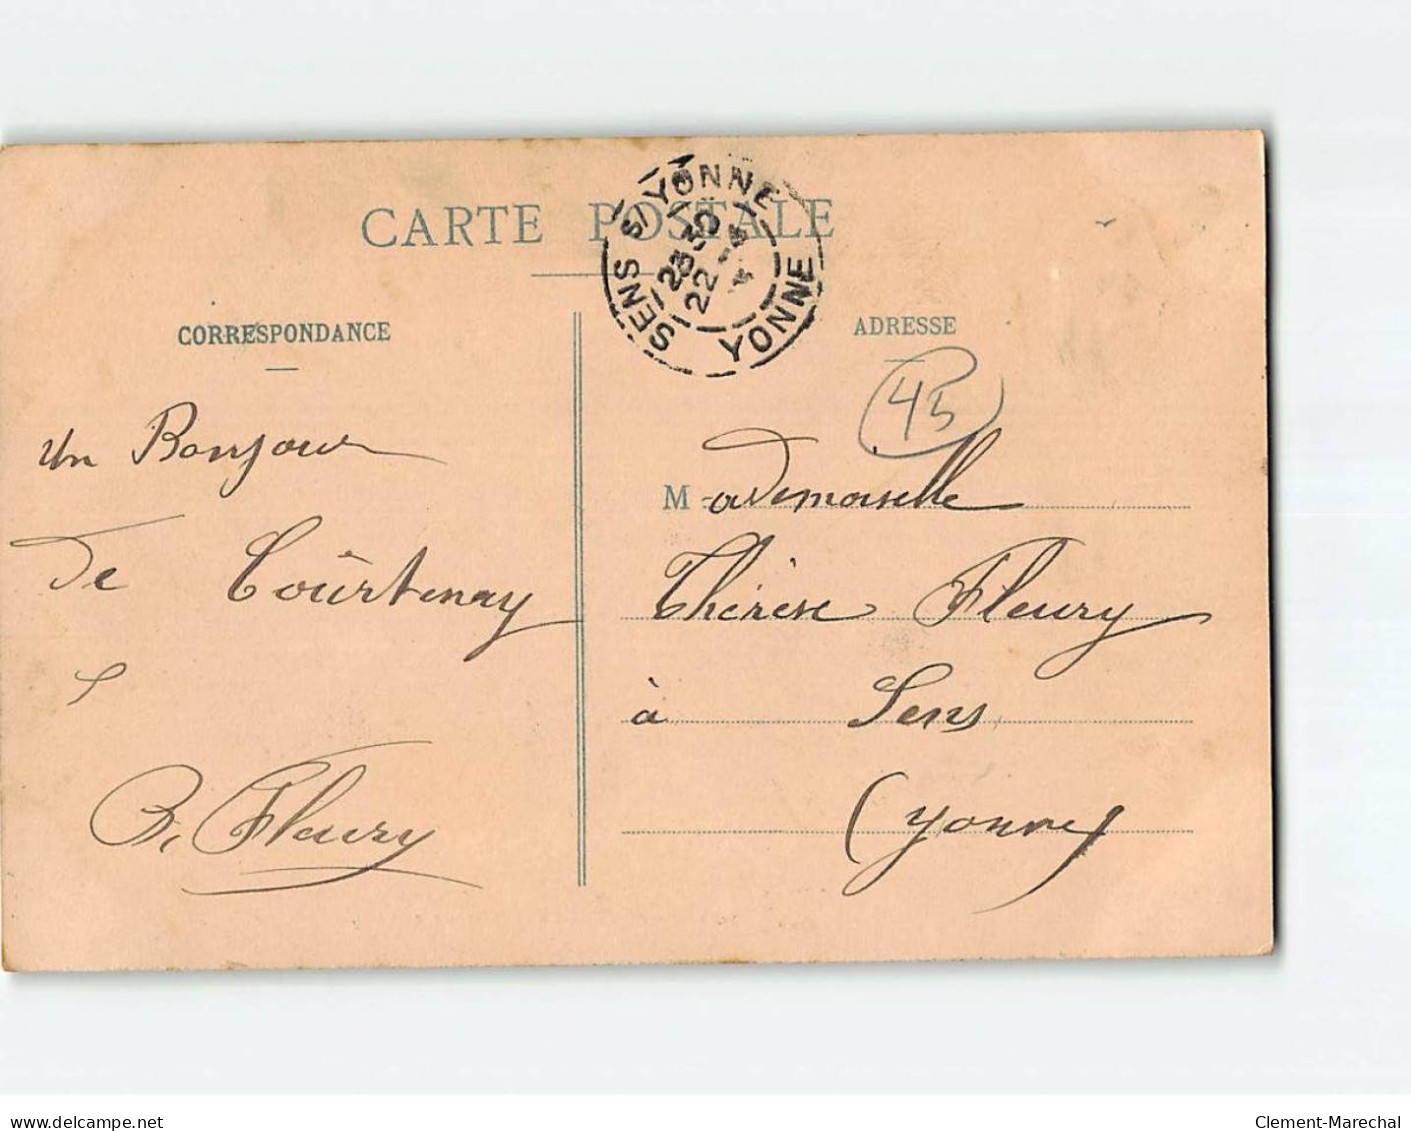 CARTE POSTALE
SENS S/YONNE
23 30
22 - 4
YONNE
CORRESPONDANCE
ADRESSE
45
Un Bonjour
de Courtenay
B. Fleury
Mademoiselle
Thérèse Fleury
à Sens
(Yonne)
delcampe.net
Clement-Marechal